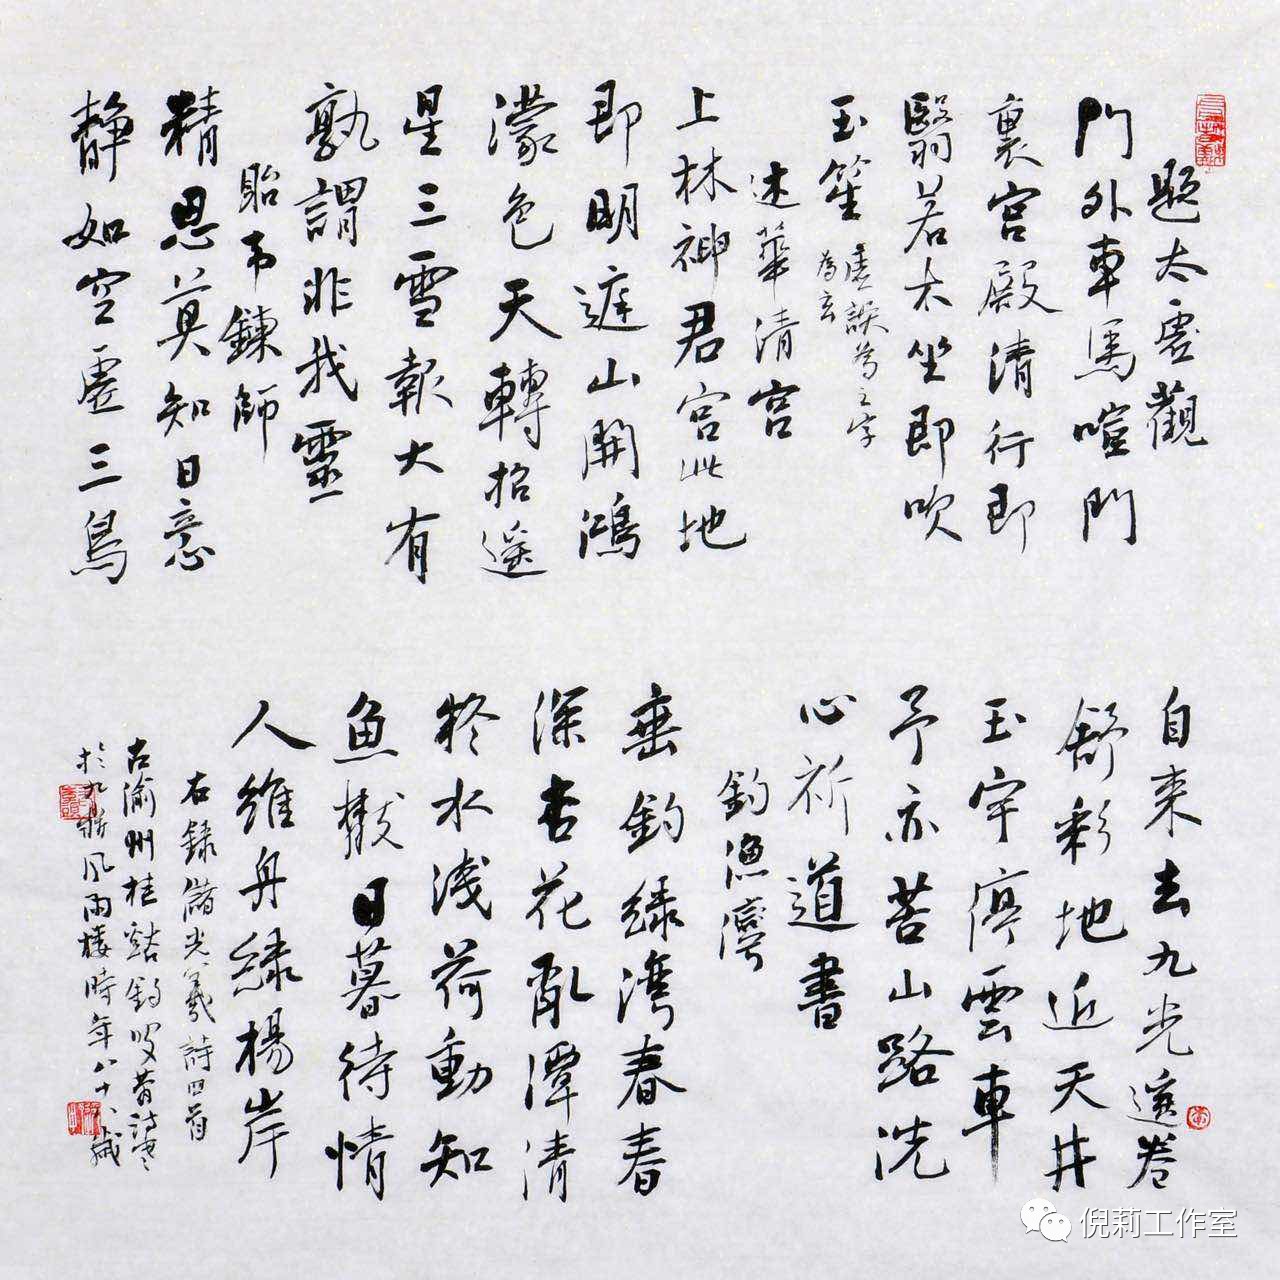 題太虛觀
門外車馬喧門
裏宮殿清行即
翳若木坐即吹
玉笙
虛誤為之字
為玄
述華清宮
上林神君宮此地
即明遮山開鴻
濛色天轉招遙
星三雪報大有
孰謂非我靈
貽韦鍊師
精思莫知日意
靜如空虛三鳥
自來去九光遥卷
舒彩地近天井
玉宇停雲車
予亦苦山路洗
心祈道書
釣漁灣
垂釣綠灣春春
深杏花亂潭清
疑水淺荷動知
魚散日暮待情
人維舟綠楊岸
右録儲光羲詩四首
古渝州桂谿釣叟
於風雨樓時年八十
倪莉工作室